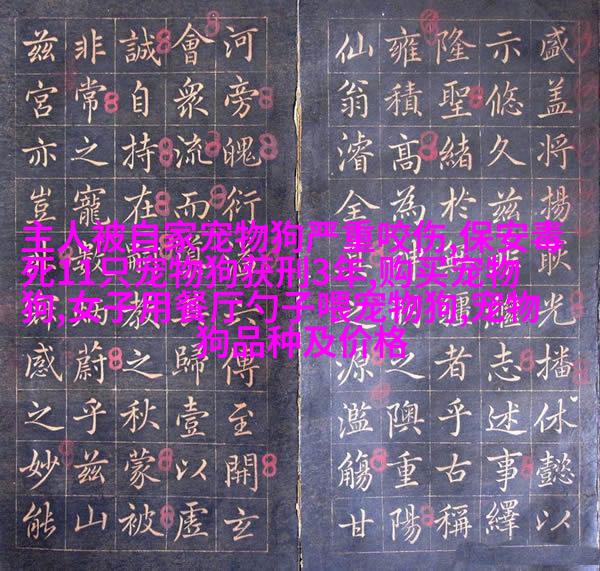 盛盖将揚耿光播休懿以
示悠久兹志述事繹
隆聖緒於者乎古稱
雍積高為之隩重陽
仙翁濬全源濫觴甘
河旁魄衍傳至開玄
會衆流而歸壹以虛
誠自持在教之秋蒙被
非常之寵蔚乎兹山
兹宮亦豈感之妙能
主人被自家宠物狗严重咬伤,保安毒
死11只宠物狗获刑3年,购买宠物
狗,女子用餐厅勺子喂宠物狗,宠物
狗品种及价格